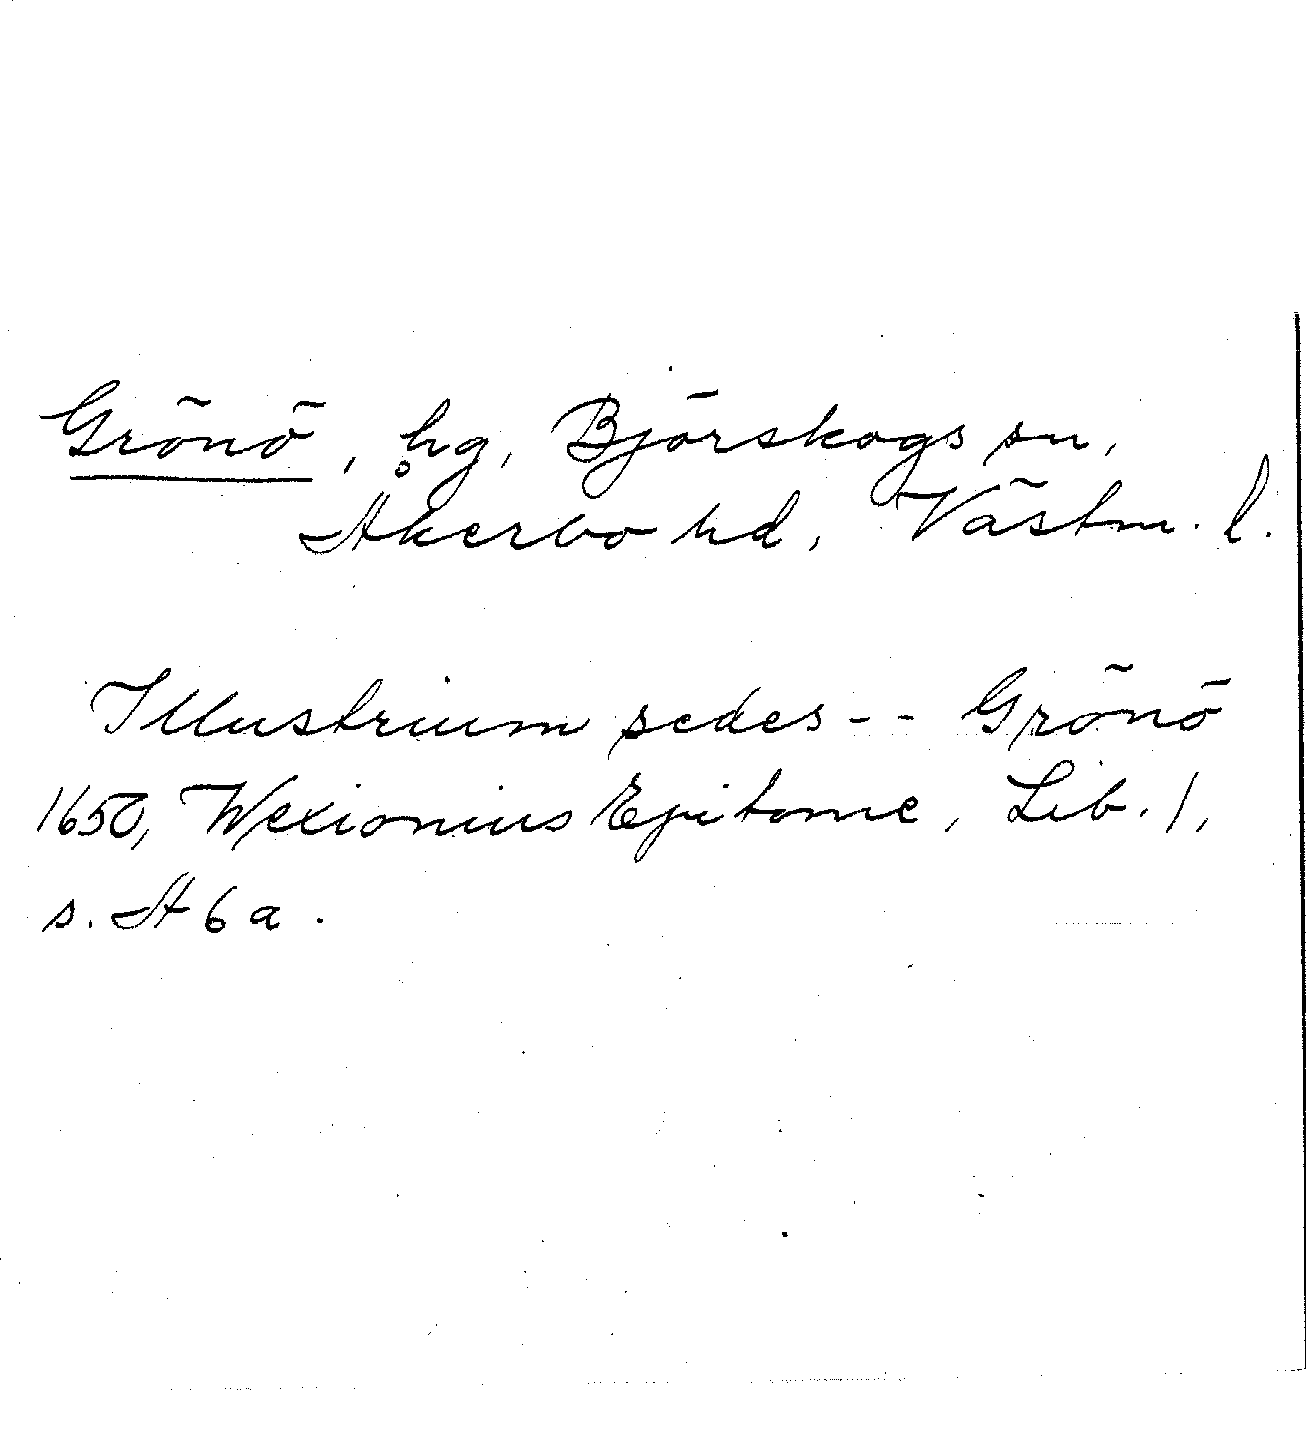 Grönö, hg, Björskogs sn,
Åkerbo hd, Västm. l.
Illustrium sedes -- Grönö
1650, Wexionius Epitome, Lib. 1,
s. A 6 a.